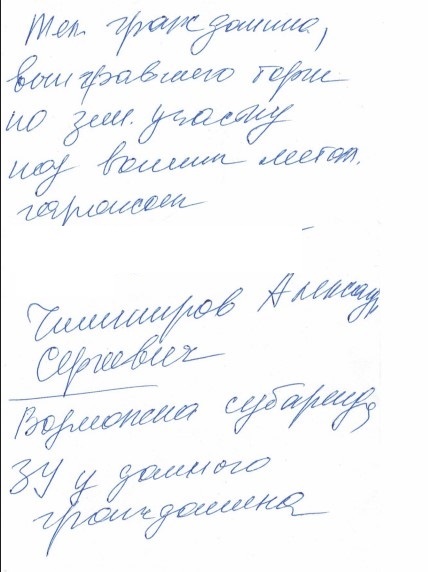 Тел. гражданина,
выигравшего торги
по зем. участку
под вашим метал.
гаражом
Александр
Сергеевич
Возможна субаренда
ЗУ у данного
гражданина